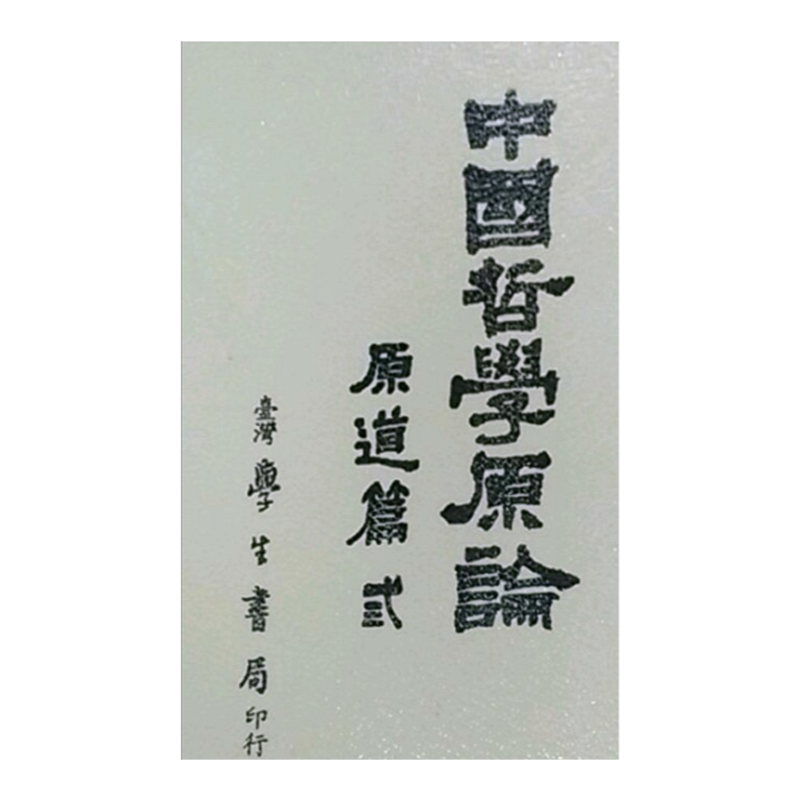 中國哲學原論
原道篇弍
臺灣學生書局印行